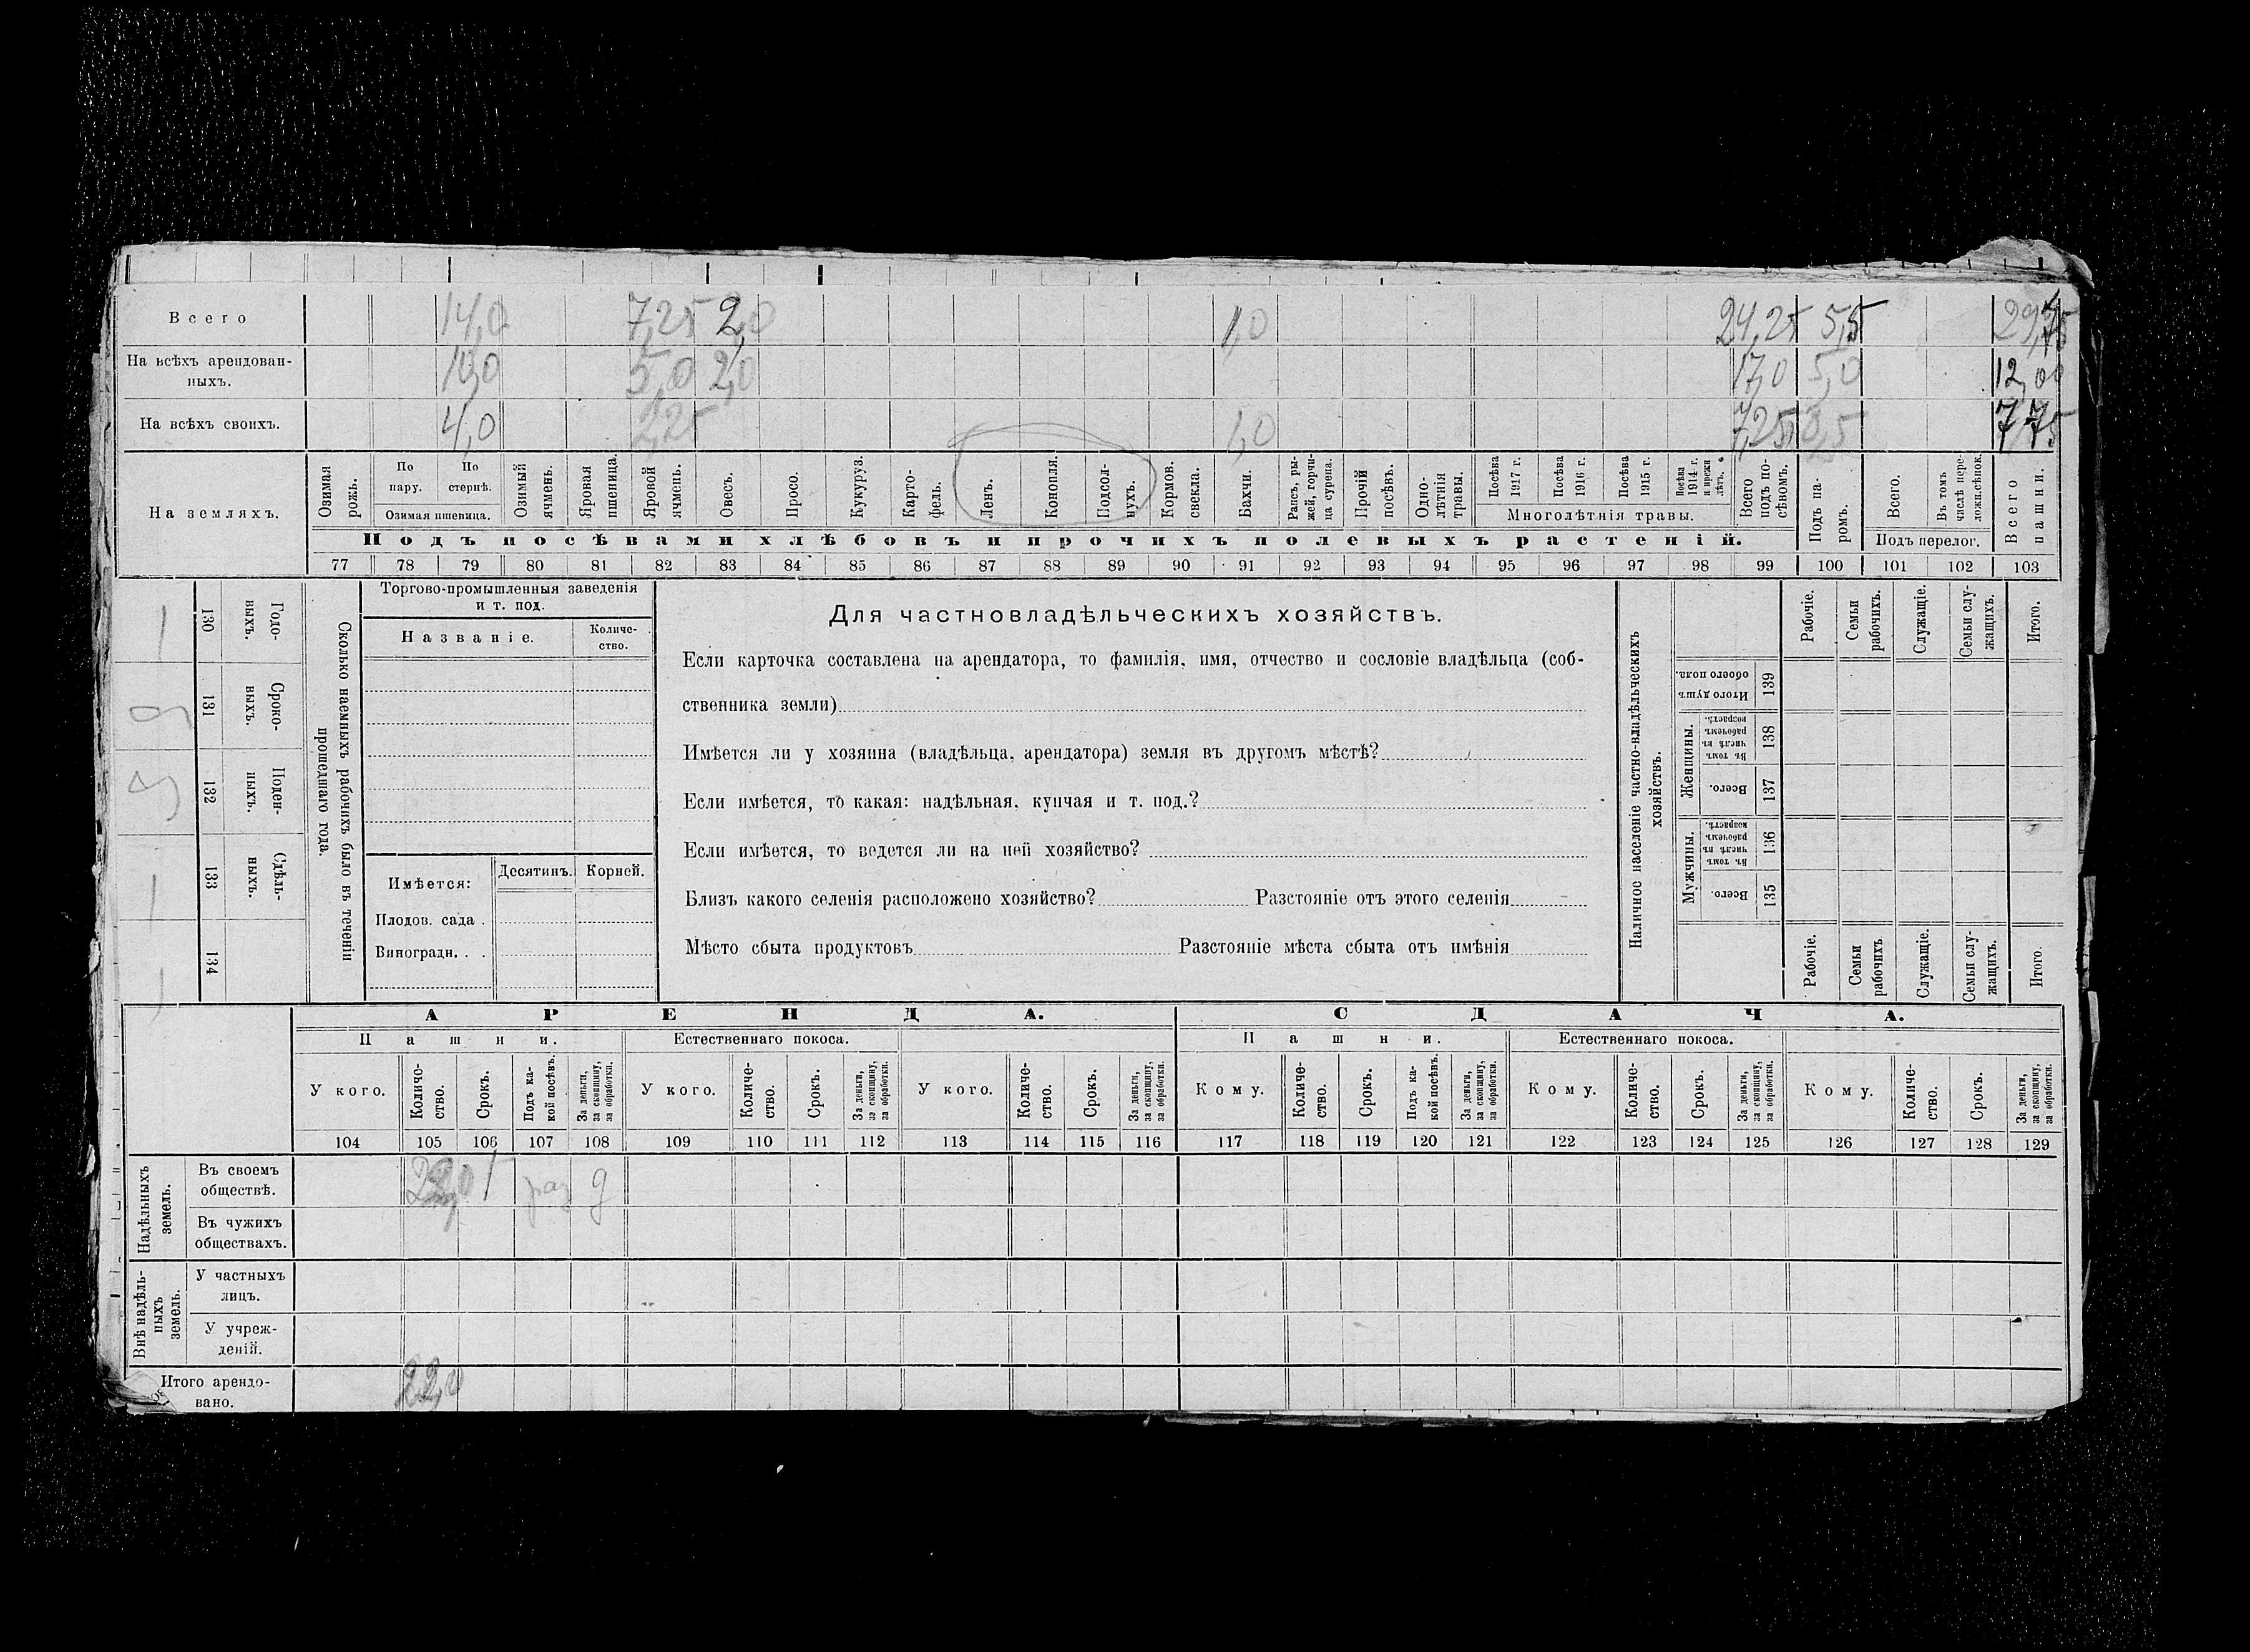 Всего 14,0 7,25 2,0 1,0 24,25 5,5 29,75
На всѣхъ арендован-
ныхъ. 10,0 5,0 2,0 17,0 5,0 12,00
На всѣхъ своихъ. 4,0 2,25 1,0 7,25 0,5 7,75
На земляхъ.
Озимая рожь.
По пару.
По стернѣ.
Озимая пшеница.
Озимый ячмень.
Яровая пшеница.
Яровой ячмень.
Овесъ.
Просо.
Кукуруз.
Карто-
фель.
Ленъ.
Конопля.
Подсол-
нухъ.
Кормов. свекла.
Бахчи.
Рапсъ, ры-
жей, горчи-
ца сурепа.
Прочій посѣвъ.
Одно-
лѣтнія травы.
Посѣва 1917 г.
Посѣва 1916 г.
Посѣва 1915 г.
Посѣва 1914 г. и прежн лѣтъ.
Многолѣтнія травы.
Всего подъ по-
сѣвомъ.
Подъ посѣвами хлѣбовъ и прочихъ полевыхъ растеній.
Подъ па-
ромъ.
Всего.
Въ томъ числѣ пере-
ложн.сѣнок.
Подъ перелог.
Всего пашни.
77 78 79 80 81 82 83 84 85 86 87 88 89 90 91 92 93 94 95 96 97 98 99 100 101 102 103
130 Годо-
выхъ.
131 Сроко-
выхъ.
132 Поден-
ныхъ.
133 Сдѣль-
ныхъ.
134
Сколько наемныхъ рабочихъ было въ теченіи
прошедшаго года.
Торгово-промышленныя заведенія
и т. под.
Названіе.
Количе-
ство.
Имѣется:
Десятинъ.
Корней.
Плодов. сада .
Виноградн. . .
Для частновладѣльческихъ хозяйствъ.
Если карточка составлена на арендатора, то фамилія, имя, отчество и сословіе владѣльца (соб-
ственника земли)
Имѣется ли у хозяина (владѣльца, арендатора) земля въ другомъ мѣстѣ?
Если имѣется, то какая: надѣльная, купчая и т. под.?
Если имѣется, то ведется ли на ней хозяйство?
Близъ какого селенія расположено хозяйство? Разстояніе отъ этого селенія
Мѣсто сбыта продуктовъ Разстояніе мѣста сбыта отъ имѣнія
Наличное населеніе частно-владѣльческихъ
хозяйствъ.
Рабочіе.
Семьи рабочихъ.
Служащіе.
Семьи слу-
жащихъ.
Итого.
Итого душъ обоего пола. 139
Женщины.
Въ томъ числѣ въ рабочемъ возрастѣ. 138
Всего. 137
Мужчины.
Въ томъ числѣ въ рабочемъ возрастѣ. 136
Всего. 135
Рабочіе.
Семьи рабочихъ
Служащіе.
Семьи слу-
жащихъ.
Итого.
АРЕНДА. СДАЧА.
Пашни. Естественнаго покоса. Пашни. Естественнаго покоса.
У кого.
Количе-
ство.
Срокъ.
Подъ ка-
кой посѣвъ.
За деньги, за скопщину, за обработки.
У кого.
Количе-
ство.
Срокъ.
За деньги, за скопщину, за обработки.
У кого.
Количе-
ство.
Срокъ.
За деньги, за скопщину, за обработки.
Кому.
Количе-
ство.
Срокъ.
Подъ ка-
кой посѣвъ.
За деньги, за скопщину, за обработки.
Кому.
Количе-
ство.
Срокъ.
За деньги, за скопщину, за обработки.
Кому.
Количе-
ство.
Срокъ.
За деньги, за скопщину, за обработки.
104 105 106 107 108 109 110 111 112 113 114 115 116 117 118 119 120 121 122 123 124 125 126 127 128 129
Надѣльныхъ земель.
Въ своемъ
обществѣ. 1 раз д
Въ чужихъ
обществахъ.
Внѣ надѣль-
ныхъ земель.
У частныхъ
лицъ.
У учреж-
деній.
Итого арендо-
вано. 22,0